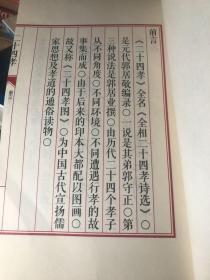 前言
《二十四孝》全名《全相二十四孝诗选》○
是元代郭居敬编录○一说是其弟郭守正○第
三种说法是郭居业撰○由历代二十四个孝子
从不同角度○不同环境○不同遭遇行孝的故
事集而成○由于后来的印本大都配以图画○
故又称《二十四孝图》○为中国古代宣扬儒
家思想及孝道的通俗读物○
二十四孝